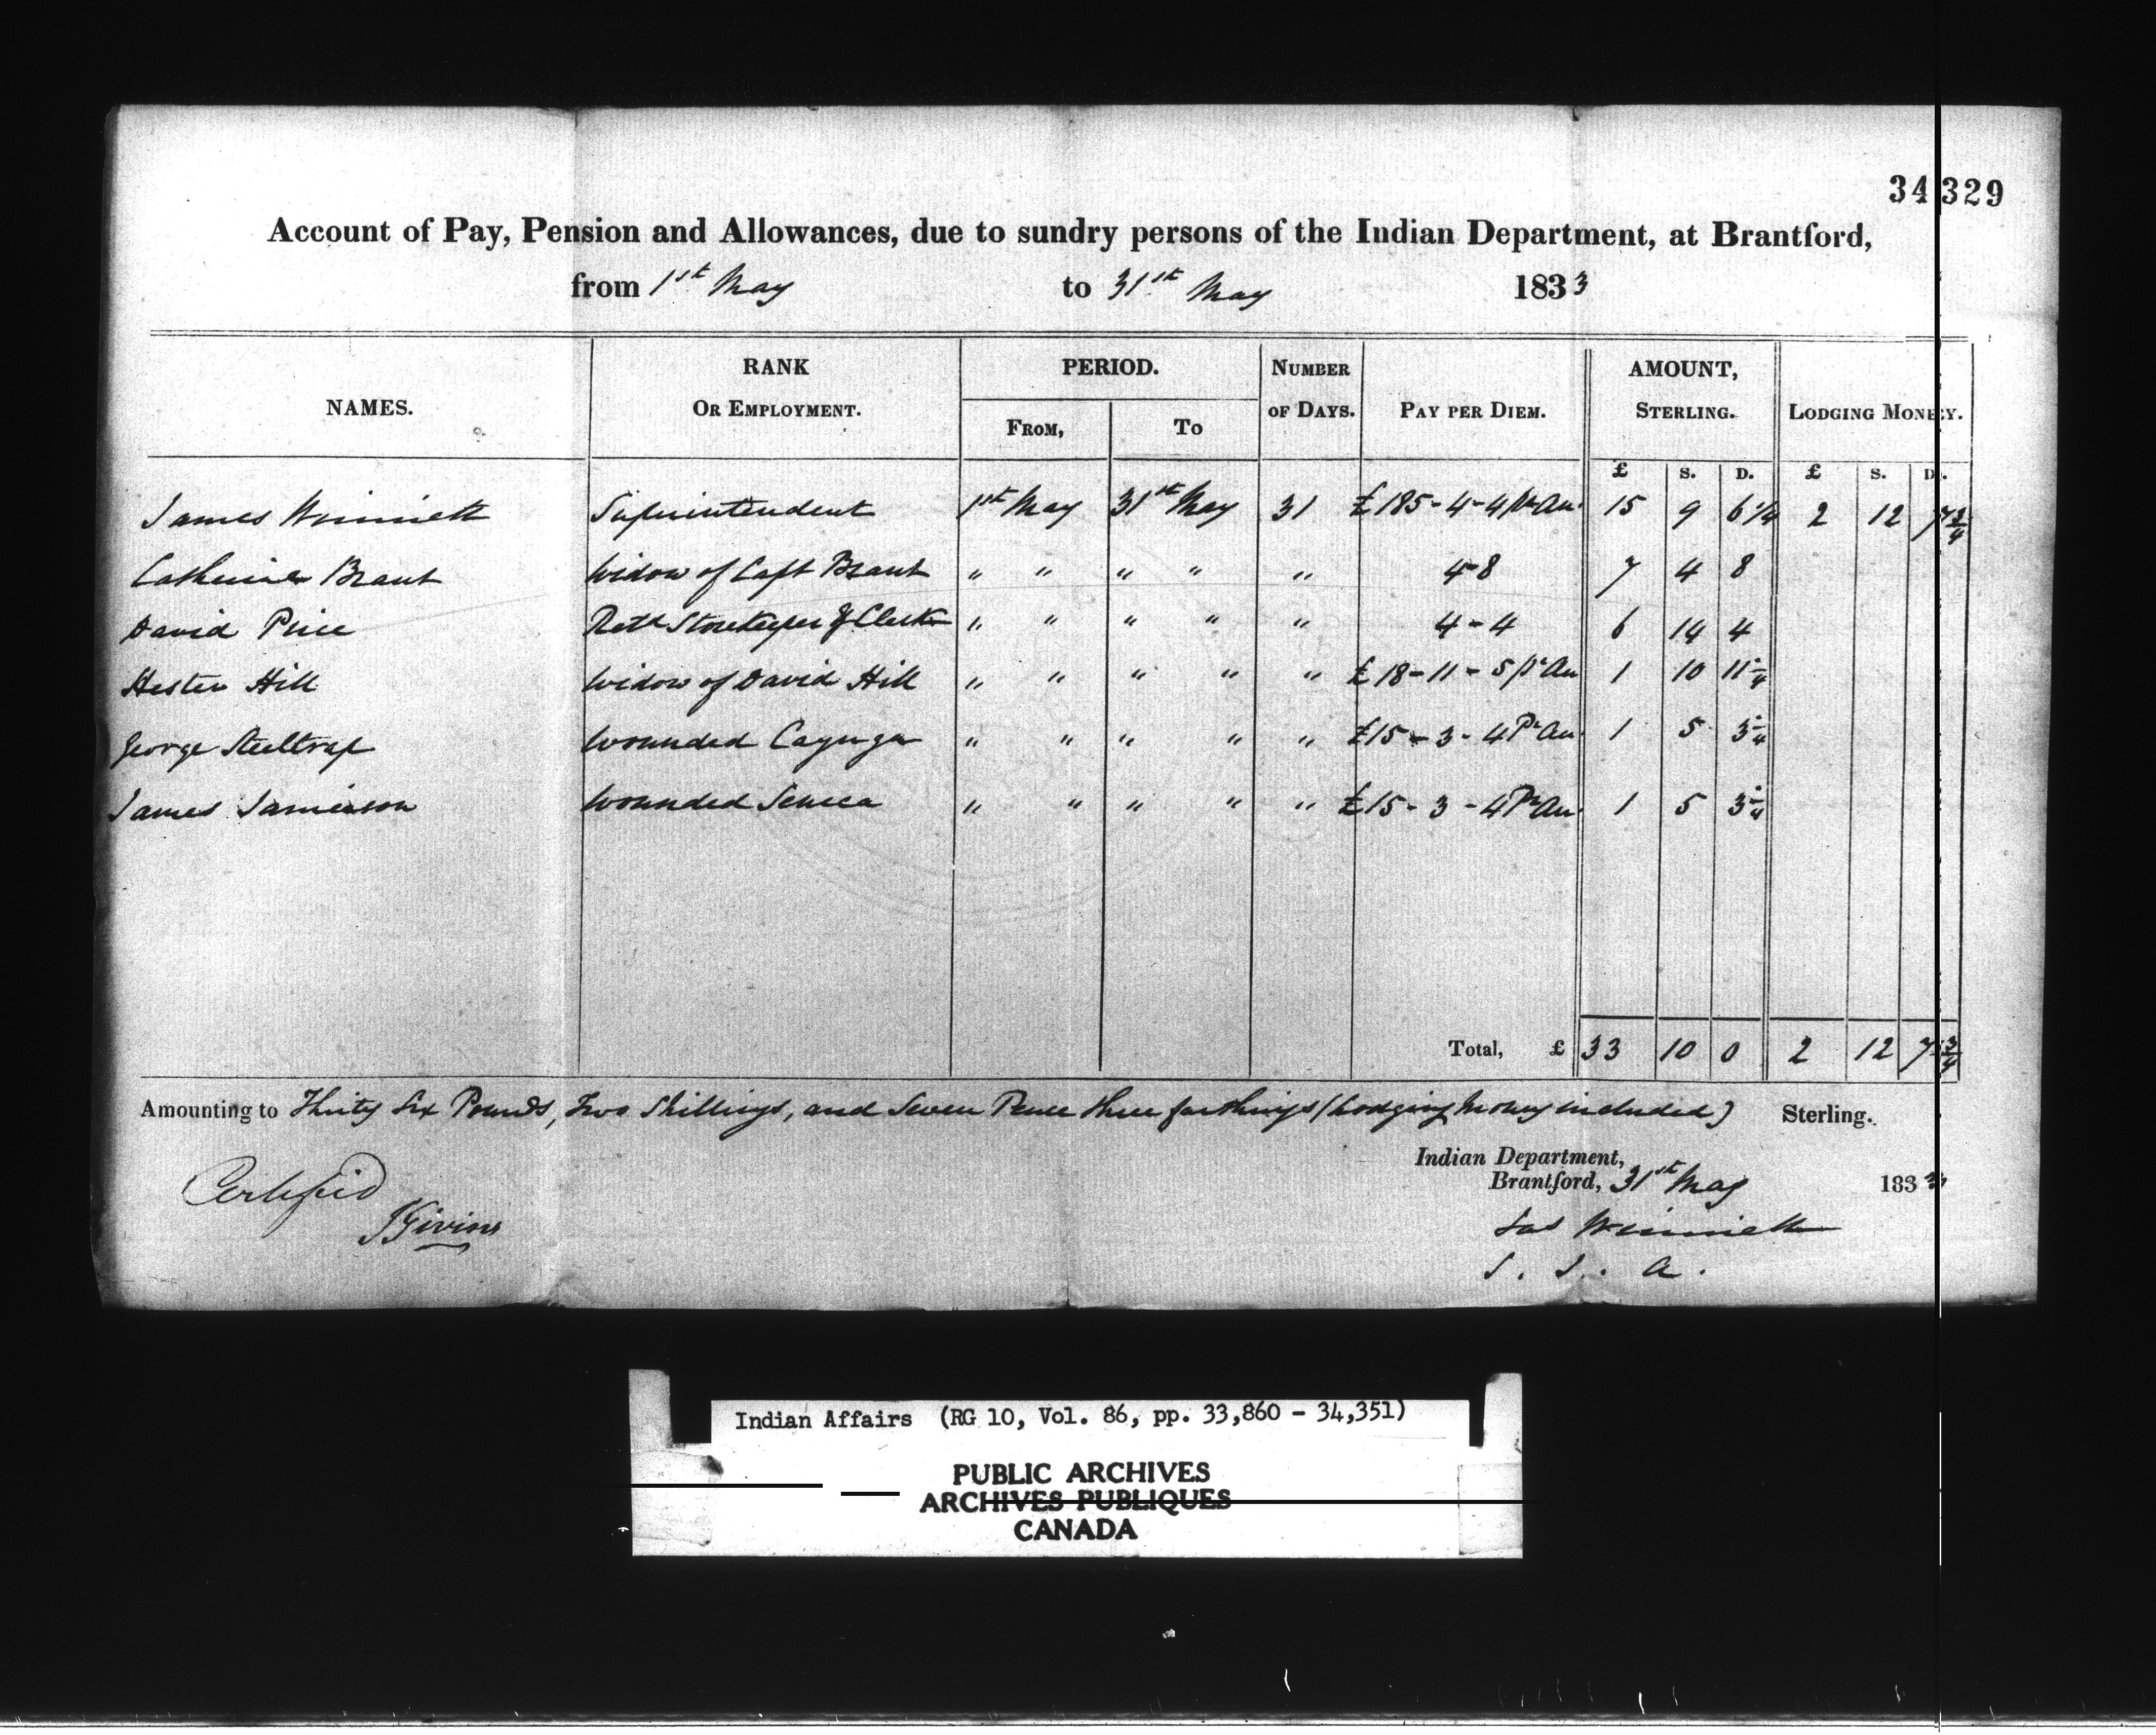 34329
Account of Pay, Pension and Allowances, due to sundry persons of the Indian Department, at Brantford,
from 1st May to 31st May 1833
NAMES. RANK OR EMPLOYMENT. PERIOD. FROM, TO NUMBER OF DAYS. PAY PER DIEM. AMOUNT, STERLING. LODGING MONEY.
£ S. D. £ S. D.
James Winniett Superintendent 1st May 31st May 31 £185-4-4 pr An. 15 9 6 1/4 2 12 7 3/4
Catherine Brant Widow of Capt Brant " " " " " 4-8 7 4 8
David Price Retd Storekeeper & Clerk " " " " " 4-4 6 14 4
Hester Hill Widow of David Hill " " " " " £18-11-5 pr An 1 10 11 1/4
George Steeltrap Wounded Cayuga " " " " " £15-3-4 Pr An. 1 5 3 1/4
James Jamieson Wounded Seneca " " " " " £15-3-4 Pr An. 1 5 3 1/4
Total, £ 33 10 0 2 12 7 3/4
Amounting to Thirty Six Pounds, Two Shillings, and Seven Pence three farthings (Lodging Money included) Sterling.
Indian Department,
Brantford, 31st May 1833
Certified
J Givins
Jas Winniett
S. I. A.
Indian Affairs (RG 10, Vol. 86, pp. 33,860 - 34,351)
PUBLIC ARCHIVES
ARCHIVES PUBLIQUES
CANADA